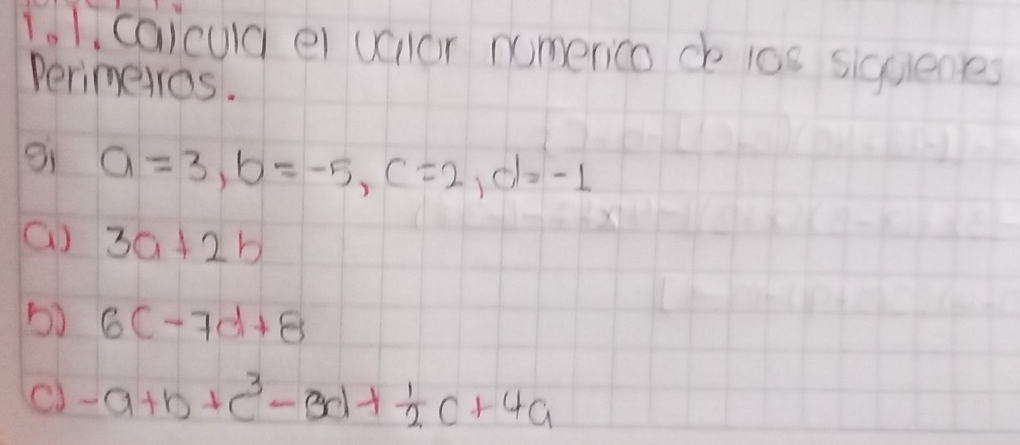 1.1. Calcula el valor numerico de los siguientes
Perimetros.
si a = 3, b = -5, c = 2, d = -1
a) 3a + 2b
b) 6c - 7d + 8
c) -a + b + c³ - 8d + ½ c + 4a